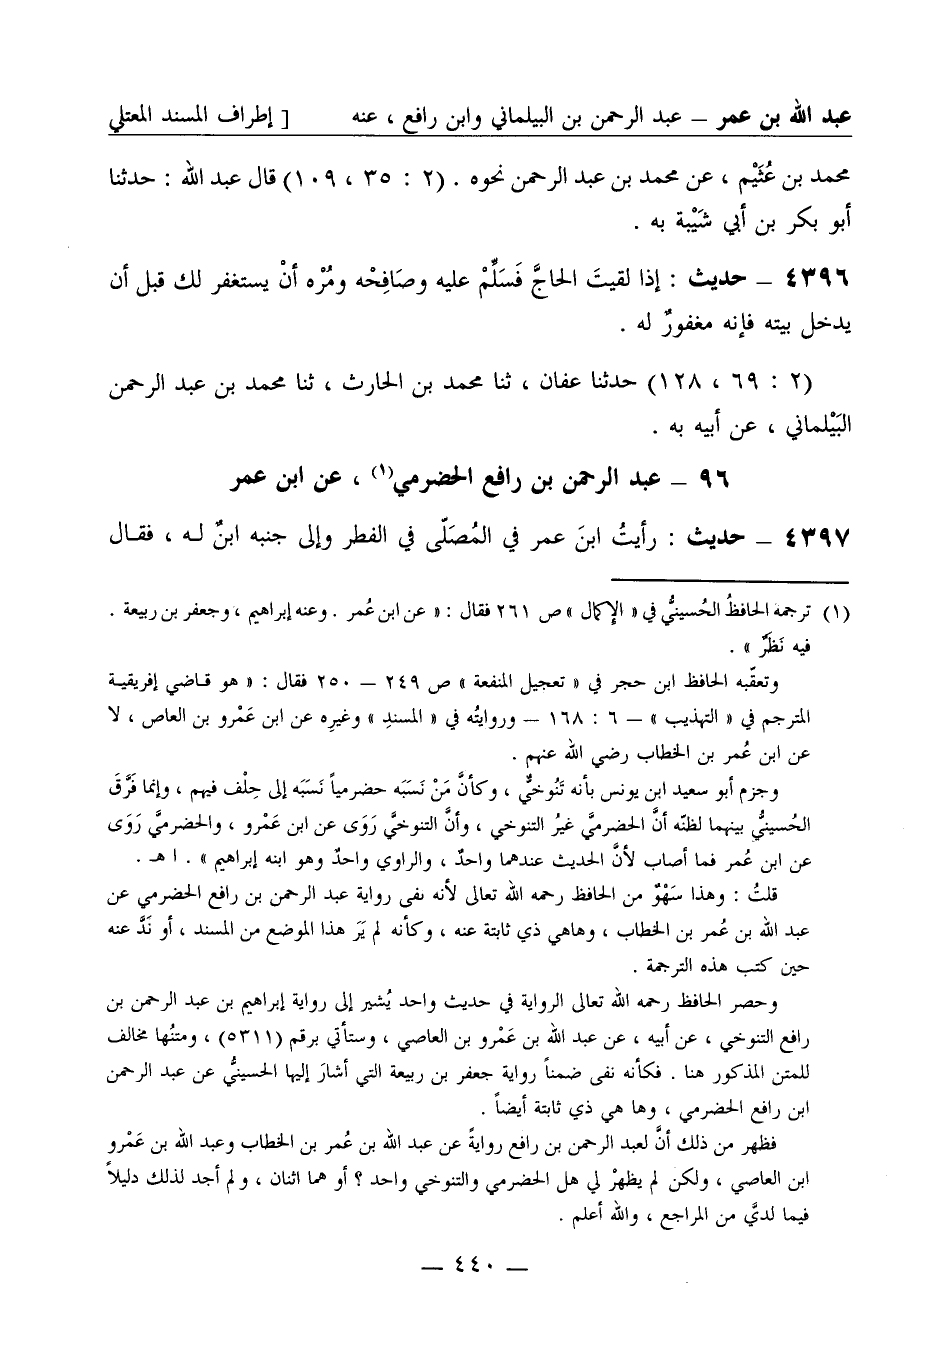 عبد الله بن عمر – عبد الرحمن بن البيلماني وابن رافع ، عنه [ إطراف المسند المعتلي
محمد بن عُثَيْم ، عن محمد بن عبد الرحمن نحوه . (٢ : ٣٥ ، ١٠٩) قال عبد الله : حدثنا
أبو بكر بن أبي شَيْبة به .
٤٣٩٦ – حديث : إذا لقيتَ الحاجَّ فَسَلِّمْ عليه وصَافِحْه ومُرْه أنْ يستغفر لك قبل أن
يدخل بيته فإنه مغفورٌ له .
(٢ : ٦٩ ، ١٢٨) حدثنا عفان ، ثنا محمد بن الحارث ، ثنا محمد بن عبد الرحمن
البَيْلماني ، عن أبيه به .
٩٦ – عبد الرحمن بن رافع الحضرمي(١) ، عن ابن عمر
٤٣٩٧ – حديث : رأيتُ ابنَ عمر في المُصَلّى في الفطر وإلى جنبه ابنٌ له ، فقال
(١) ترجمه الحافظُ الحُسينيُّ في « الإكمال » ص ٢٦١ فقال : « عن ابن عُمر . وعنه إبراهيم ، وجعفر بن ربيعة .
فيه نَظَرٌ » .
وتعقّبه الحافظ ابن حجر في « تعجيل المنفعة » ص ٢٤٩ – ٢٥٠ فقال : « هو قاضي إفريقية
المترجم في « التهذيب » – ٦ : ١٦٨ – وروايتُه في « المسندِ » وغيرِه عن ابن عَمْرو بن العاص ، لا
عن ابن عُمر بن الخطاب رضي الله عنهم .
وجزم أبو سعيد ابن يونس بأنه تَنُوخيٌّ ، وكأنَّ مَنْ نَسَبَه حضرمياً نَسَبَه إلى حِلْف فيهم ، وإنما فَرَّقَ
الحُسينيُّ بينهما لظنّه أنَّ الحضرميَّ غيرُ التنوخي ، وأنَّ التنوخيَّ رَوَى عن ابن عَمْرو ، والحضرميَّ رَوَى
عن ابن عُمر فما أصاب لأنَّ الحديث عندهما واحدٌ ، والراوي واحدٌ وهو ابنه إبراهيم » . ا هـ .
قلتُ : وهذا سَهْوٌ من الحافظ رحمه الله تعالى لأنه نفى رواية عبد الرحمن بن رافع الحضرمي عن
عبد الله بن عُمر بن الخطاب ، وهاهي ذي ثابتة عنه ، وكأنه لم يَرَ هذا الموضع من المسند ، أو نَدَّ عنه
حين كتب هذه الترجمة .
وحصر الحافظ رحمه الله تعالى الرواية في حديث واحد يُشير إلى رواية إبراهيم بن عبد الرحمن بن
رافع التنوخي ، عن أبيه ، عن عبد الله بن عَمْرو بن العاصي ، وستأتي برقم (٥٣١١) ، ومتنُها مخالف
للمتن المذكور هنا . فكأنه نفى ضمناً رواية جعفر بن ربيعة التي أشارَ إليها الحسينيُّ عن عبد الرحمن
ابن رافع الحضرمي ، وها هي ذي ثابتة أيضاً .
فظهر من ذلك أنَّ لعبد الرحمن بن رافع روايةً عن عبد الله بن عُمر بن الخطاب وعبد الله بن عَمْرو
ابن العاصي ، ولكن لم يظهرْ لي هل الحضرمي والتنوخي واحد ؟ أو هما اثنان ، ولم أجد لذلك دليلاً
فيما لديَّ من المراجع ، والله أعلم .
– ٤٤٠ –